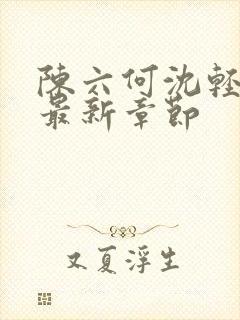 陳六何沈輕
最新章節
又夏浮生